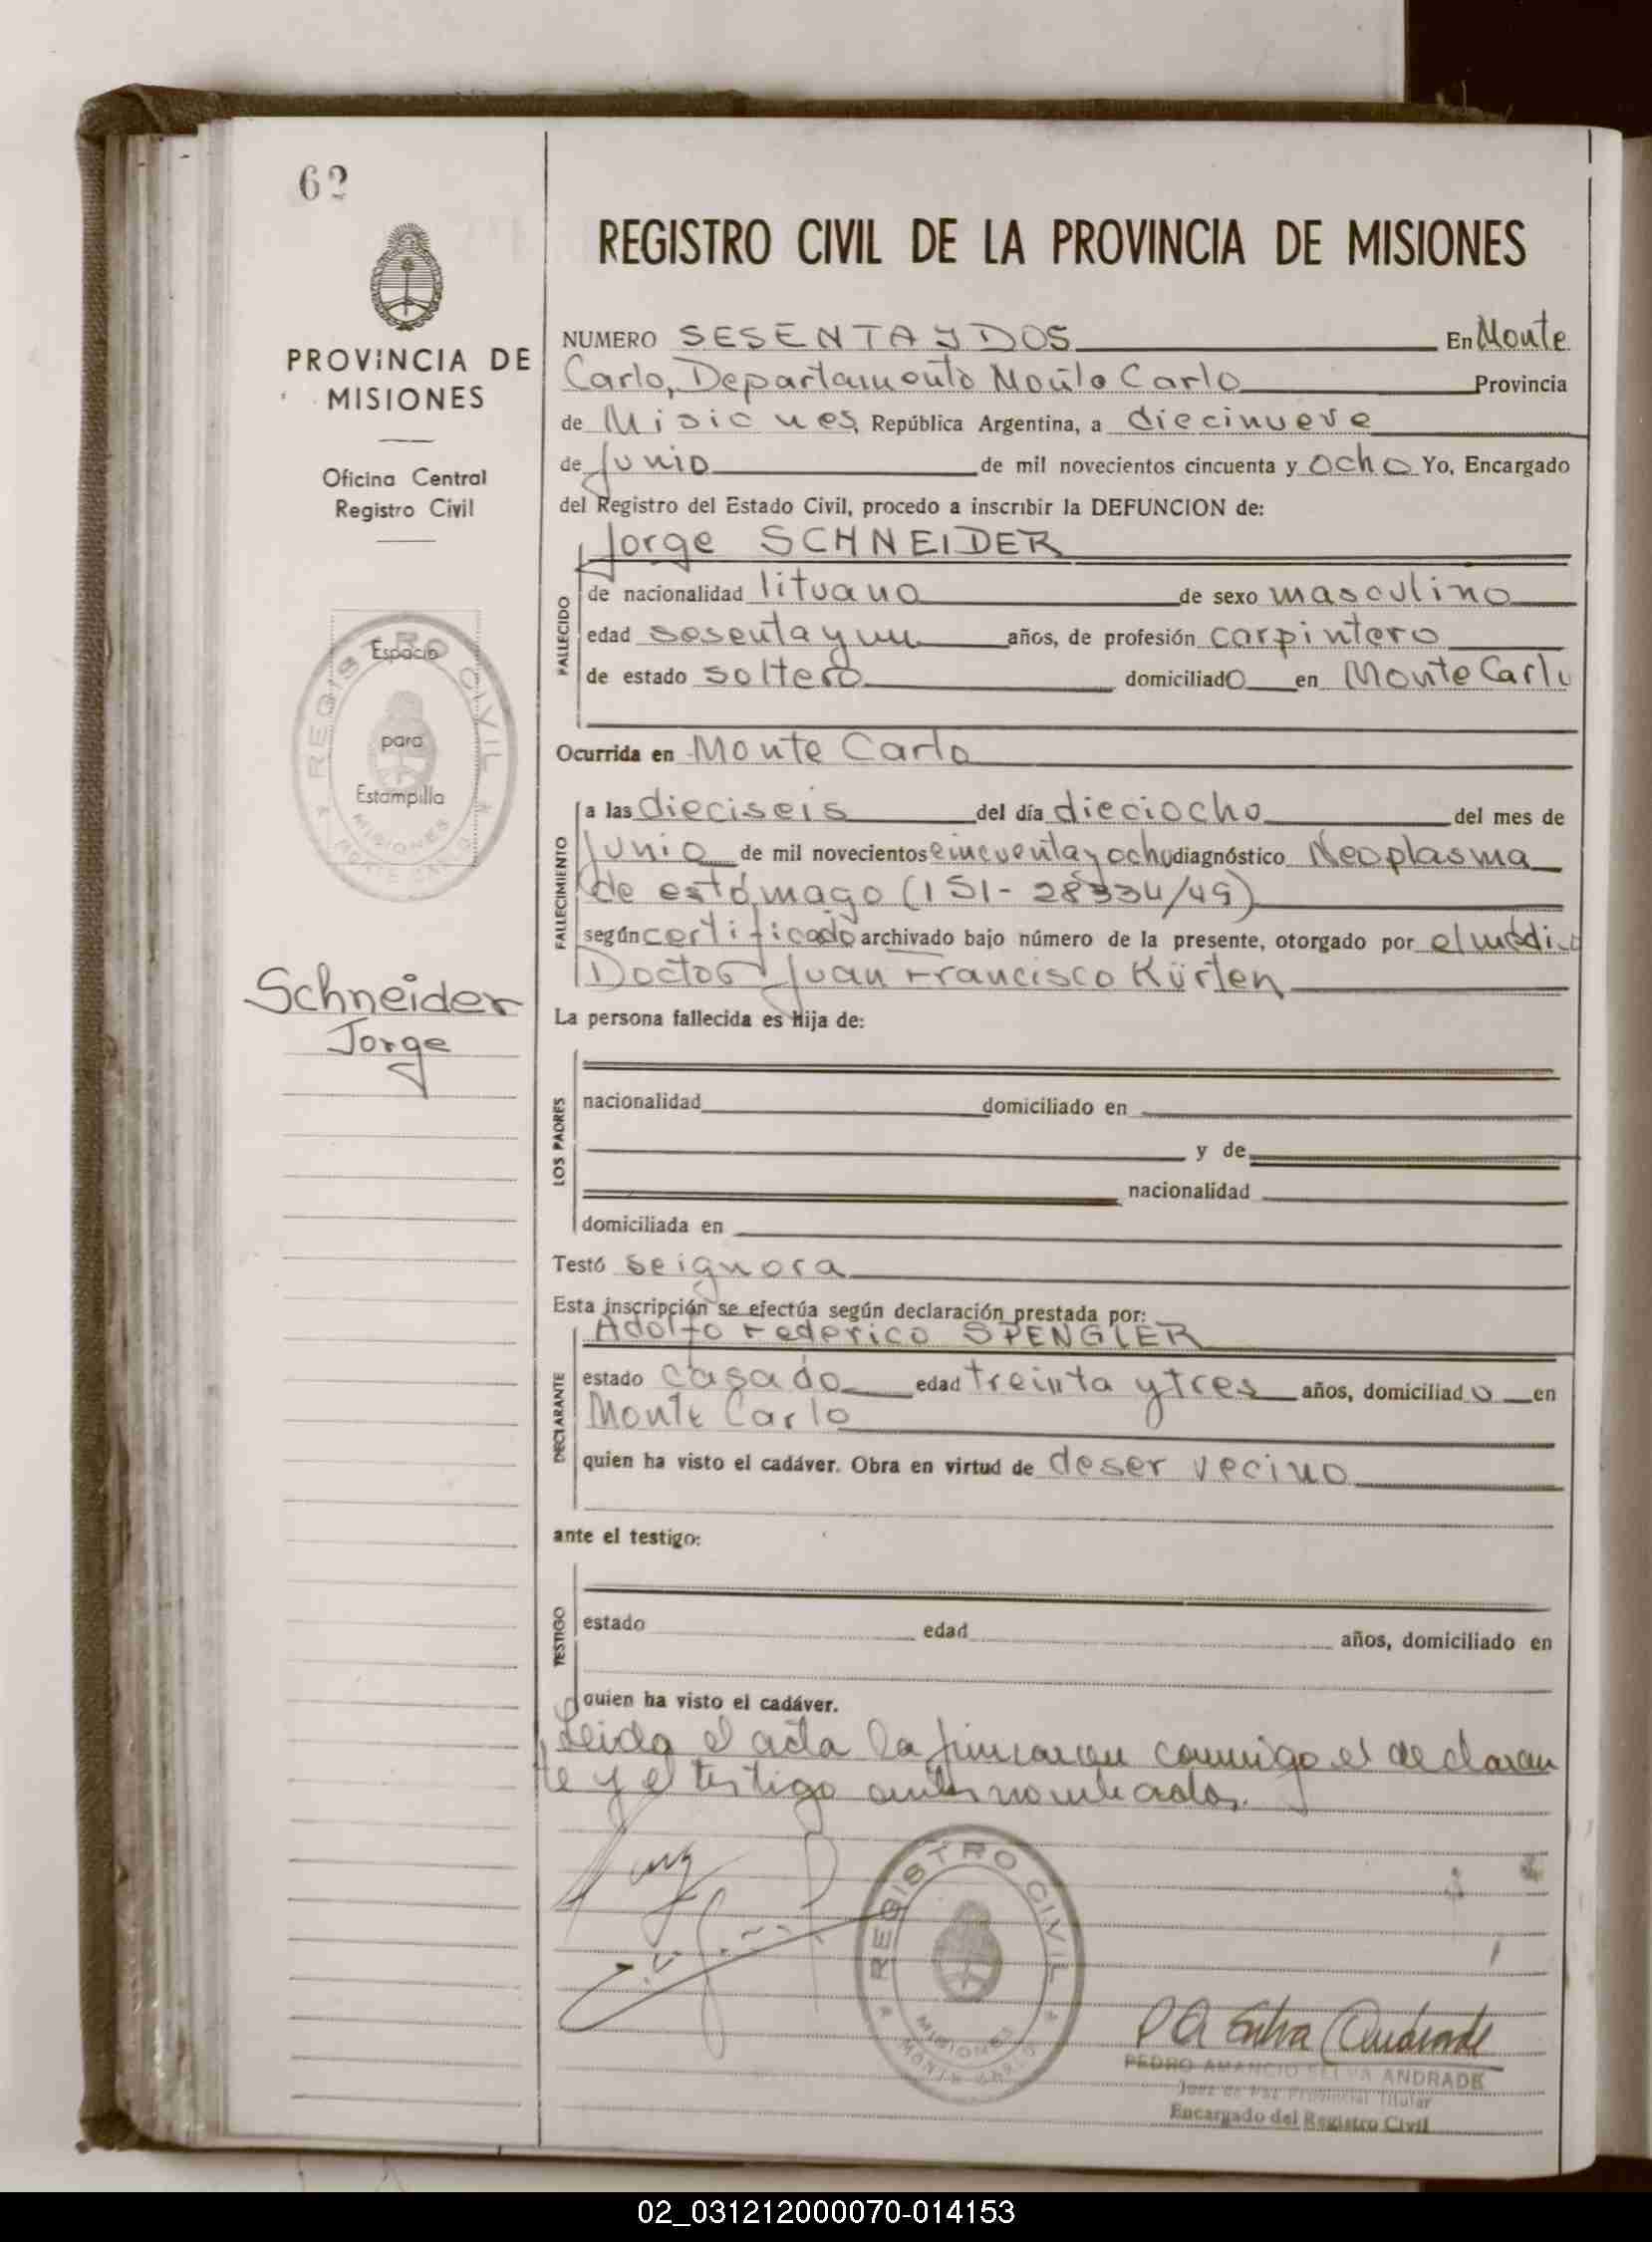 62
PROVINCIA DE
MISIONES
Oficina Central
Registro Civil
Espacio
para
Estampilla
REGISTRO CIVIL
MISIONES
MONTE CARLO
Schneider
Jorge
REGISTRO CIVIL DE LA PROVINCIA DE MISIONES
NUMERO SESENTA Y DOS En Monte
Carlo, Departamento Monte Carlo Provincia
de Misiones, República Argentina, a diecinueve
de Junio de mil novecientos cincuenta y ocho Yo, Encargado
del Registro del Estado Civil, procedo a inscribir la DEFUNCION de:
Jorge SCHNEIDER
FALLECIDO
de nacionalidad lituano de sexo masculino
edad sesenta y un años, de profesión carpintero
de estado soltero domiciliado en Monte Carlo
Ocurrida en Monte Carlo
FALLECIMIENTO
a las dieciseis del día dieciocho del mes de
Junio de mil novecientos cincuenta y ocho diagnóstico Neoplasma
de estómago (151-28334/49)
según certificado archivado bajo número de la presente, otorgado por el médico
Doctor Juan Francisco Kürten
La persona fallecida es Hija de:
LOS PADRES
nacionalidad domiciliado en
y de
nacionalidad
domiciliada en
Testó seignora
Esta inscripción se efectúa según declaración prestada por:
Adolfo Federico SPENGLER
DECLARANTE
estado casado edad treinta y tres años, domiciliado en
Monte Carlo
quien ha visto el cadáver. Obra en virtud de deser vecino
ante el testigo:
TESTIGO
estado edad años, domiciliado en
quien ha visto el cadáver.
Leida el acta la firmaron conmigo el declaran
te y el testigo antes nombrados.
REGISTRO CIVIL
MISIONES
MONTE CARLO
PEDRO AMANCIO SELVA ANDRADE
Juez de Paz Provincial Titular
Encargado del Registro Civil
02_031212000070-014153